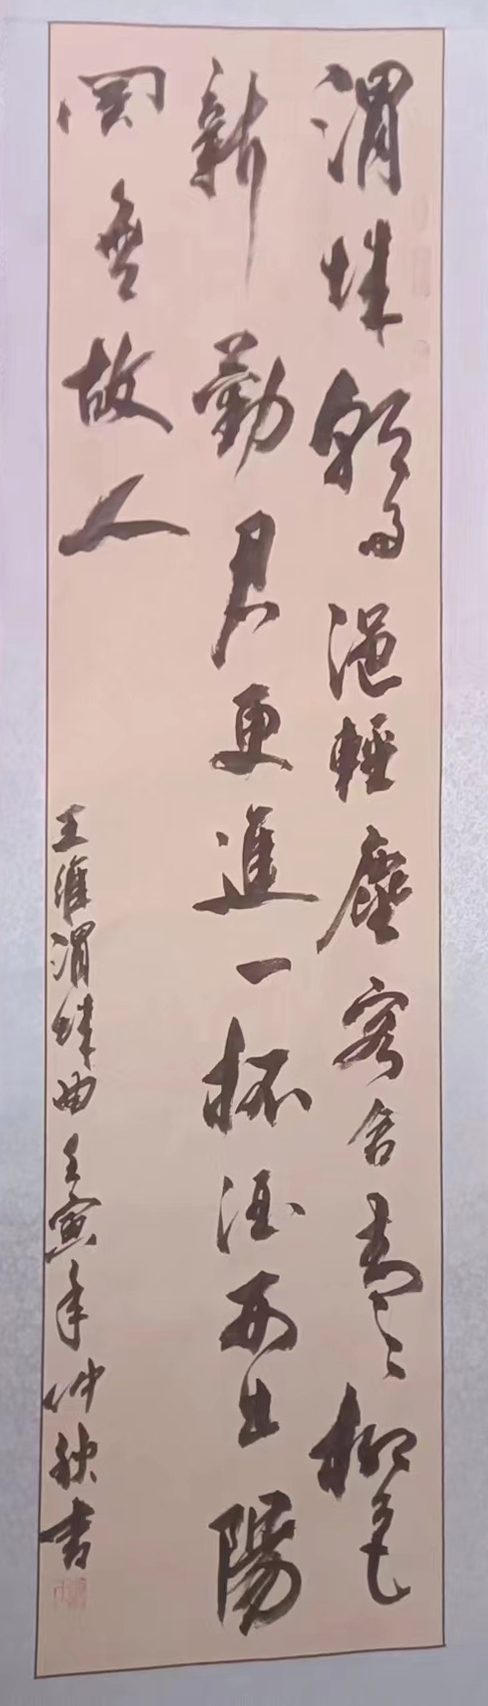 渭城朝雨浥輕塵客舍青々柳色
新勸君更進一杯酒西出陽
関無故人
王維渭城曲壬寅年仲秋書